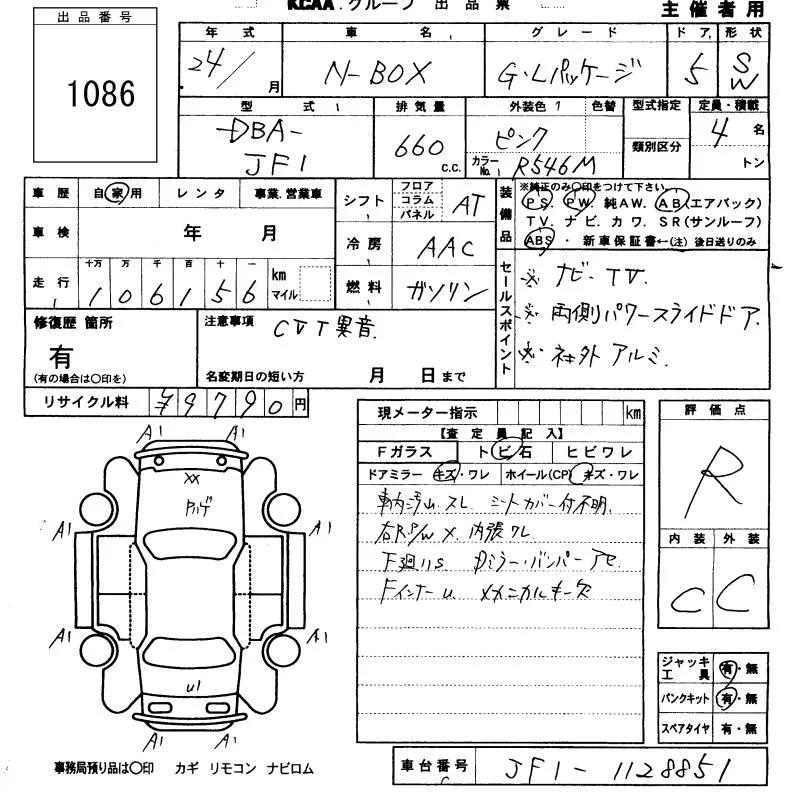 KCAA.グループ 出品票 主催者用
出品番号
1086
年式 車名 グレード ドア 形状
24/ 月 N-BOX G・Lパッケージ 5 SW
型式 排気量 外装色 色替 型式指定 定員・積載
DBA-JF1 660 c.c. ピンク カラーNo. R546M 類別区分 4名 トン
車歴 自家用 レンタ 事業.営業車
車検 年 月
走行 十万 万 千 百 十 一
106156 km マイル
シフト フロア コラム パネル AT
冷房 AAC
燃料 ガソリン
装備品 ※純正のみ○印をつけて下さい。
PS. PW. 純AW. AB(エアバック)
TV. ナビ. カワ. SR(サンルーフ)
ABS ・ 新車保証書←(注) 後日送りのみ
セールスポイント
※ ナビ-TV.
※ 両側パワースライドドア.
※ 社外アルミ.
修復歴 箇所
有
(有の場合は○印を)
注意事項 CVT異音
名変期日の短い方 月 日まで
リサイクル料 ¥9790円
現メーター指示 km
【査定員記入】
Fガラス トビ石 ヒビワレ
ドアミラー キズ・ワレ ホイール(CP) キズ・ワレ
車内汚れ. スレ シートカバー付不明.
右R P/W X. 内張ワレ
下廻りS Dミラー・バンパー アセ
Fインナーu. メカニカルキー欠
評価点
R
内装 外装
C C
ジャッキ工具 有・無
パンクキット 有・無
スペアタイヤ 有・無
A1 A1
XX
A1 A1
A1 A1
U1
A1 A1
事務局預り品は○印 カギ リモコン ナビロム
車台番号 JF1-1128851